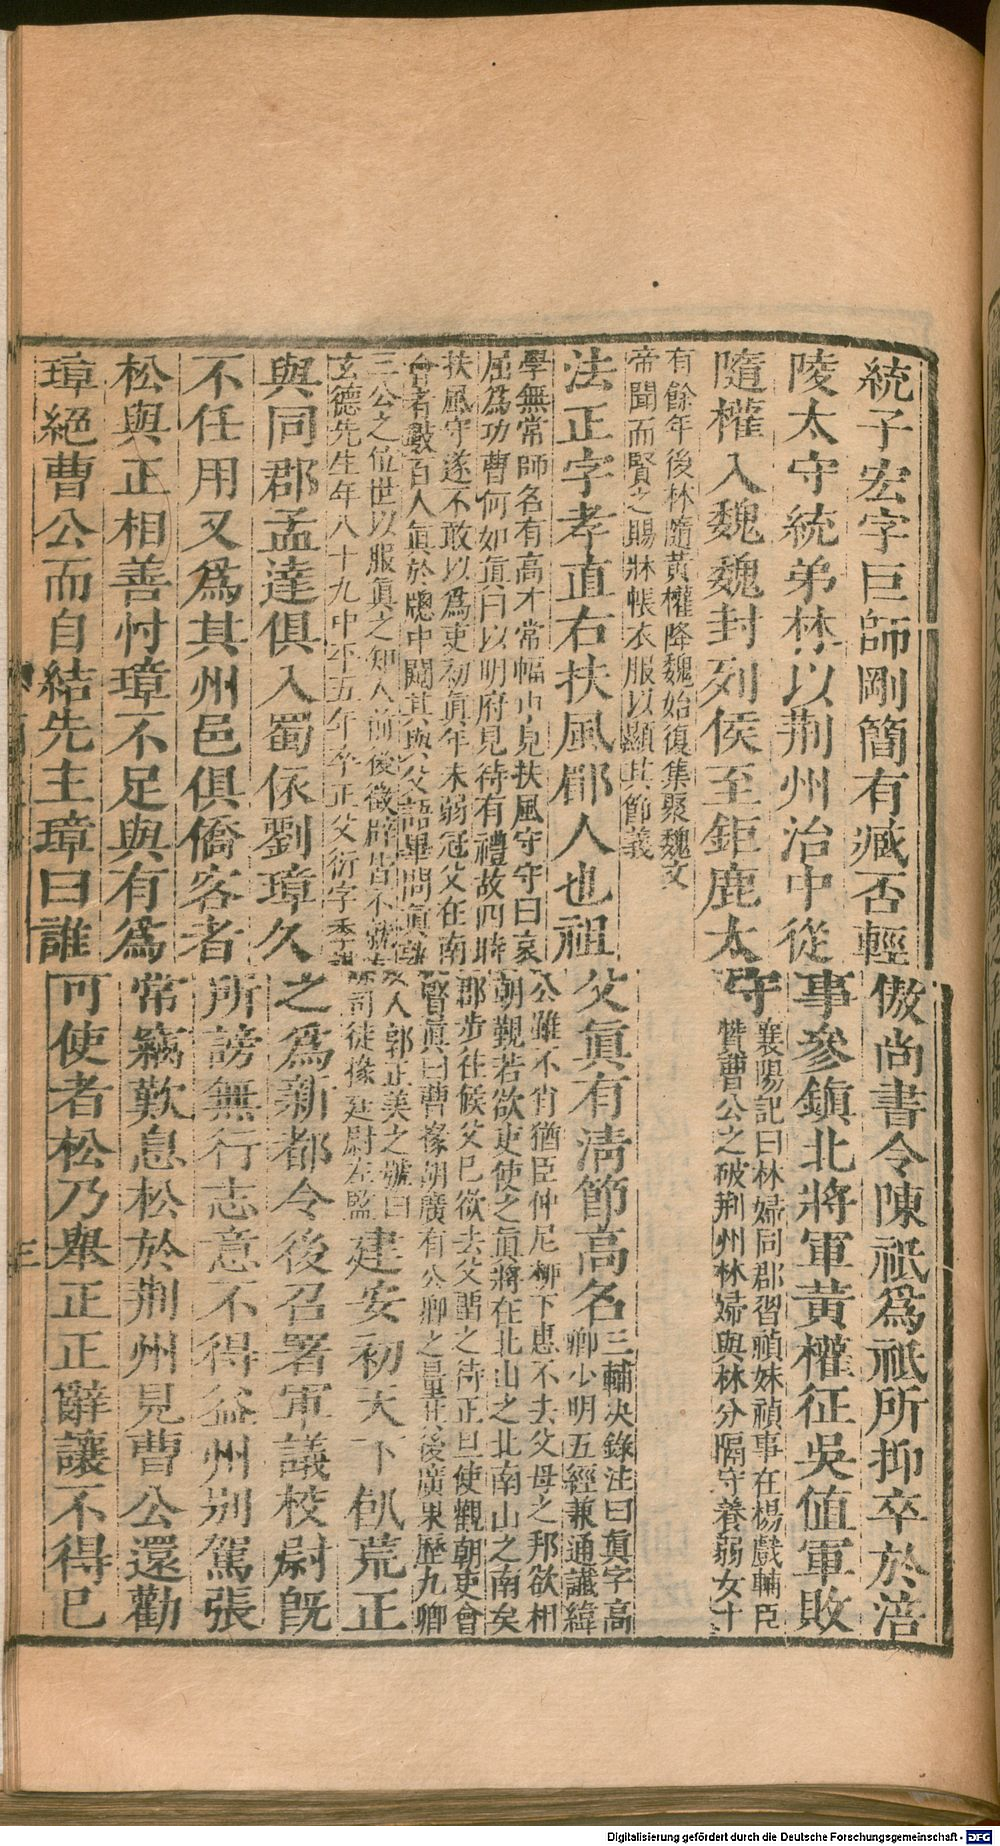 統子宏字巨師剛簡有臧否輕傲尚書令陳祗爲祗所抑卒於涪
陵太守統弟林以荆州治中從事參鎮北將軍黃權征吳值軍敗
隨權入魏魏封列侯至鉅鹿太守
襄陽記曰林婦同郡習禎妹禎事在楊戲輔臣
贊曹公之破荆州林婦與林分隔守養弱女十
有餘年後林隨黃權降魏始復集聚魏文
帝聞而賢之賜牀帳衣服以顯其節義
法正字孝直右扶風郿人也祖父眞有清節高名
三輔決錄注曰眞字高
卿少明五經兼通讖緯
學無常師名有高才常幅巾見扶風守守曰哀公雖不肖猶臣仲尼柳下惠不去父母之邦欲相
屈爲功曹何如眞曰以明府見待有禮故四時朝覲若欲吏使之眞將在北山之北南山之南矣
扶風守遂不敢以爲吏初眞年未弱冠父在南郡步往候父已欲去父留之待正旦使觀朝吏會
會者數百人眞於牕中闚其與父語畢問眞孰賢眞曰曹掾胡廣有公卿之量其後廣果歷九卿
三公之位世以服眞之知人前後徵辟皆不就友人郭正美之號曰
玄德先生年八十九中平五年卒正父衍字季謀司徒掾廷尉左監
建安初天下飢荒正
與同郡孟達俱入蜀依劉璋久之爲新都令後召署軍議校尉旣
不任用又爲其州邑俱僑客者所謗無行志意不得益州别駕張
松與正相善忖璋不足與有爲常竊歎息松於荆州見曹公還勸
璋絕曹公而自結先主璋曰誰可使者松乃舉正正辭讓不得已
三
Digitalisierung gefördert durch die Deutsche Forschungsgemeinschaft - DFG